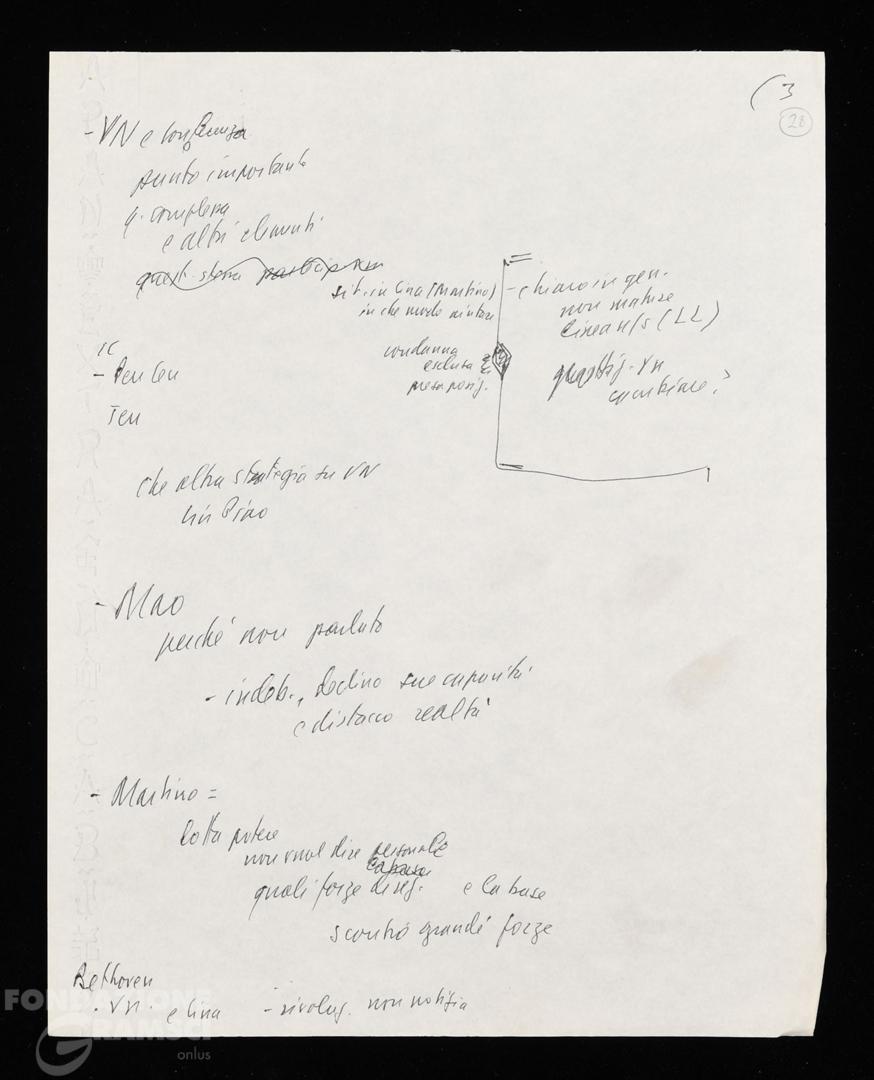 (3
28
- VN e conferenza
punto importante
q. complessa
e altri elementi
quest. stessa partecip
sit. in Cina (Martino)
in che modo aiutare
condanna
esclusa
presa posiz.
- chiaro in gen.
non mature
linea u/s (LL)
VN
cambiare?
IC
-
Ten
che altra strategia su VN
Lin Piao
- Mao
perché non parlato
- indeb., declino sue capacità
e distacco realtà
- Martino =
lotta potere
non vuol dire personale
quali forze diseg. e la base
scontro grandi forze
Bethoven
. VN. e Cina - rivoluz. non notizia
FONDAZIONE
GRAMSCI
onlus